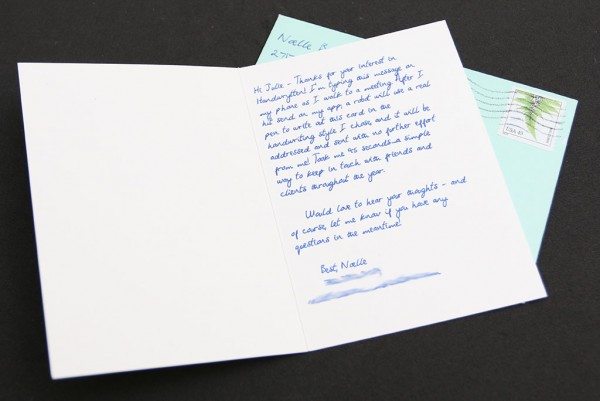 Hi Julie - Thanks for your interest in
Handwrytten! I'm typing this message on
my phone as I walk to a meeting. After I
hit send on my app, a robot will use a real
pen to write at this card in the
handwriting style I chose, and it will be
addressed and sent with no further effort
from me! Took me 45 seconds—a simple
way to keep in touch with friends and
clients throughout the year.
Would love to hear your thoughts - and
of course, let me know if you have any
questions in the meantime!
Best, Noelle
Noelle B
275
USA